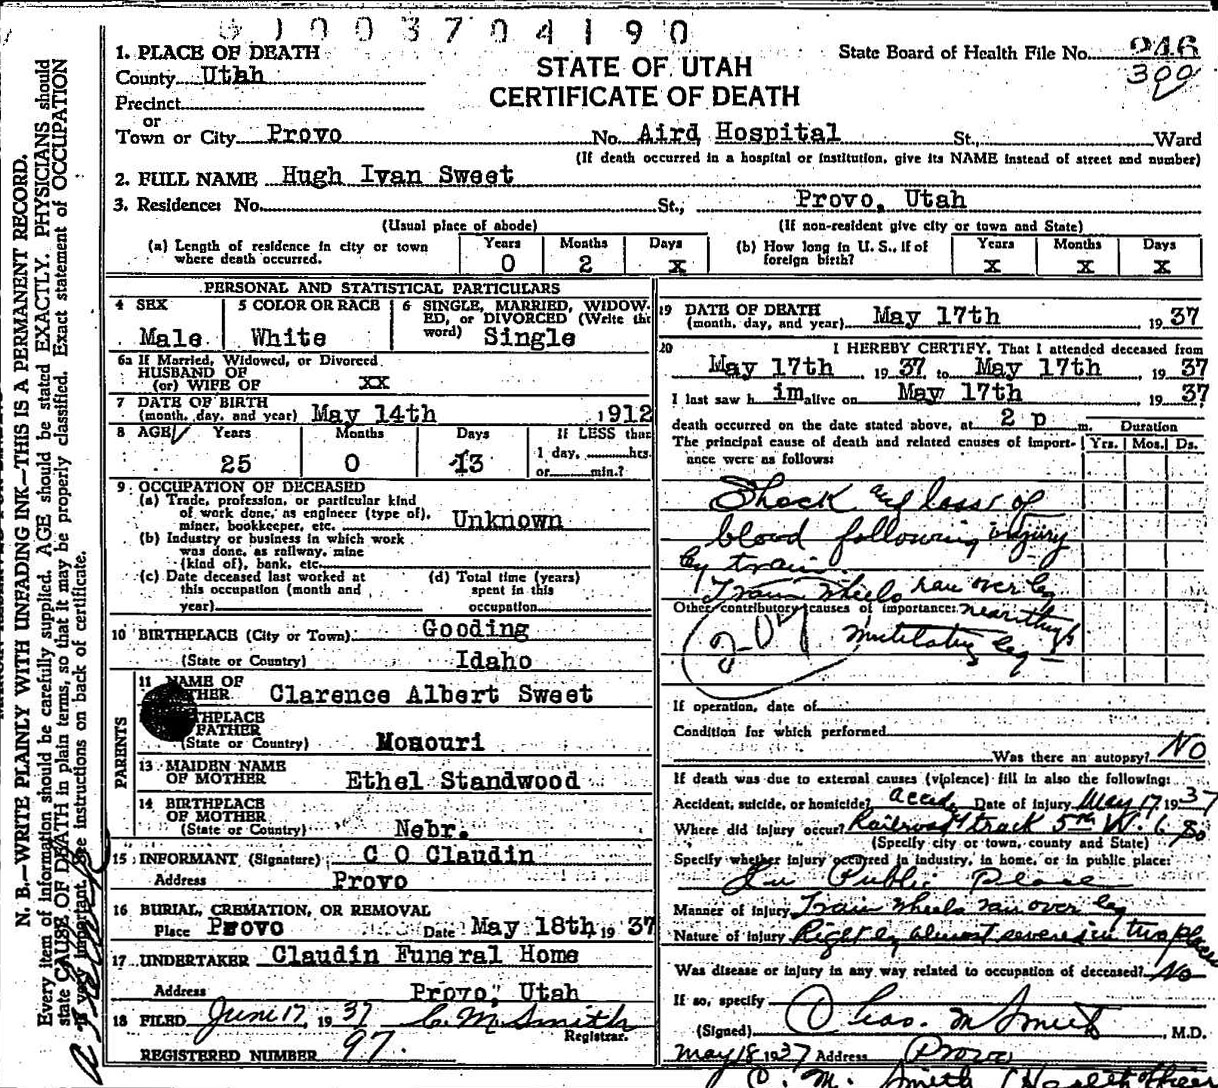 1003704190
1. PLACE OF DEATH
County Utah
Precinct
or
Town or City Provo No. Aird Hospital St., Ward
(If death occurred in a hospital or institution, give its NAME instead of street and number)
STATE OF UTAH
CERTIFICATE OF DEATH
State Board of Health File No. 246
300
2. FULL NAME Hugh Ivan Sweet
3. Residence: No. St., Provo, Utah
(Usual place of abode) (If non-resident give city or town and State)
(a) Length of residence in city or town where death occurred. Years 0 Months 2 Days x
(b) How long in U. S., if of foreign birth? Years x Months x Days x
PERSONAL AND STATISTICAL PARTICULARS
4 SEX Male
5 COLOR OR RACE White
6 SINGLE, MARRIED, WIDOWED, or DIVORCED (Write the word) Single
6a If Married, Widowed, or Divorced
HUSBAND OF
(or) WIFE OF xx
7 DATE OF BIRTH
(month, day, and year) May 14th 1912
8 AGE Years 25 Months 0 Days 13 If LESS than
1 day, hrs.
or min.?
9 OCCUPATION OF DECEASED
(a) Trade, profession, or particular kind
of work done, as engineer (type of),
miner, bookkeeper, etc. Unknown
(b) Industry or business in which work
was done, as railway, mine
(kind of), bank, etc.
(c) Date deceased last worked at
this occupation (month and
year)
(d) Total time (years)
spent in this
occupation
10 BIRTHPLACE (City or Town) Gooding
(State or Country) Idaho
PARENTS
11 NAME OF
Clarence Albert Sweet
FATHER
(State or Country) Mosouri
13 MAIDEN NAME
OF MOTHER Ethel Standwood
14 BIRTHPLACE
OF MOTHER
(State or Country) Nebr.
15 INFORMANT (Signature) C O Claudin
Address Provo
16 BURIAL, CREMATION, OR REMOVAL
Place Provo Date May 18th, 1937
17 UNDERTAKER Claudin Funeral Home
Address Provo, Utah
18 FILED June 17, 1937 C. M. Smith
Registrar.
REGISTERED NUMBER 97.
19 DATE OF DEATH
(month, day, and year) May 17th 1937
20 I HEREBY CERTIFY, That I attended deceased from
May 17th 1937 to May 17th 1937
I last saw h im alive on May 17th 1937
death occurred on the date stated above, at 2 p m. Duration
The principal cause of death and related causes of importance were as follows: Yrs. Mos. Ds.
Shock and loss of
blood following injury
by train.
Train wheels ran over leg
Other contributory causes of importance: near thigh
mutilating leg
If operation, date of
Condition for which performed
Was there an autopsy? No
If death was due to external causes (violence) fill in also the following:
Accident, suicide, or homicide? Date of injury May 17 1937
Where did injury occur? Railroad track 5th W. 6
(Specify city or town, county and State)
Specify whether injury occurred in industry, in home, or in public place:
In Public Place
Manner of injury Train wheels ran over leg
Nature of injury Right leg almost severed in two places
Was disease or injury in any way related to occupation of deceased? No
If so, specify
(Signed) M Smith M.D.
May 18 1937 Address Provo
N. B.—WRITE PLAINLY WITH UNFADING INK—THIS IS A PERMANENT RECORD.
Every item of information should be carefully supplied. AGE should be stated EXACTLY. PHYSICIANS should
state CAUSE OF DEATH in plain terms, so that it may be properly classified. Exact statement of OCCUPATION
important. See instructions on back of certificate.